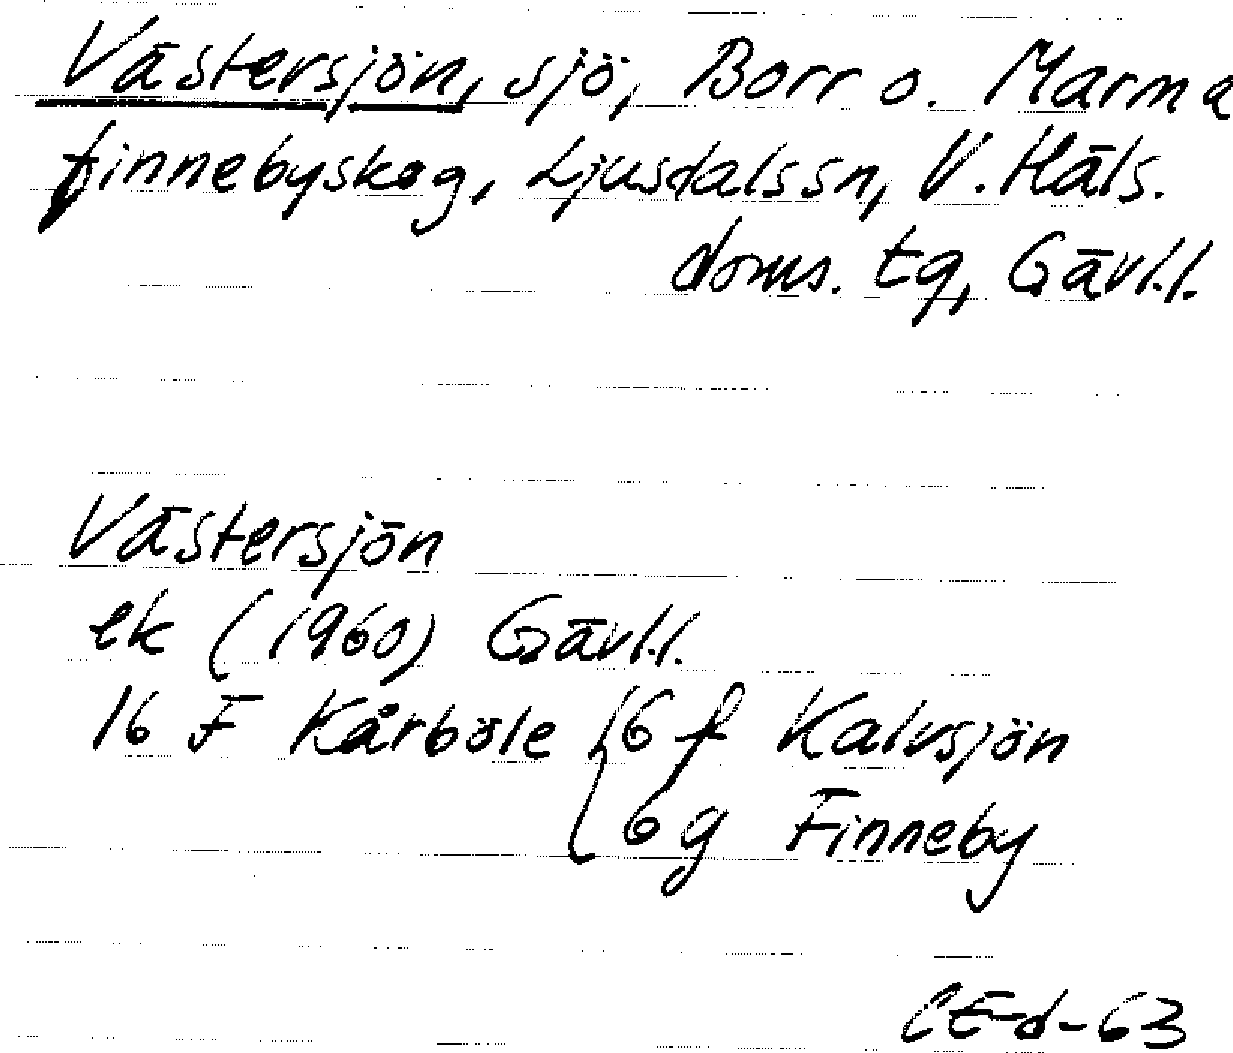 Västersjön, sjö, Borr o. Marma
finnebyskog, Ljusdalssn, V. Häls.
doms. tg, Gävl.l.
Västersjön
ek (1960) Gävl.l.
16 F Kårböle { 6 f Kalvsjön
6 g Finneby
CE-d-63